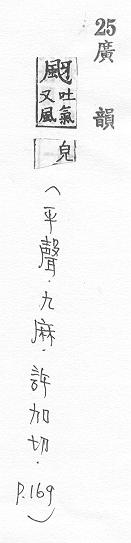 25廣韻
颬吐氣又風
皃
（平聲．九麻．許加切．p.169）